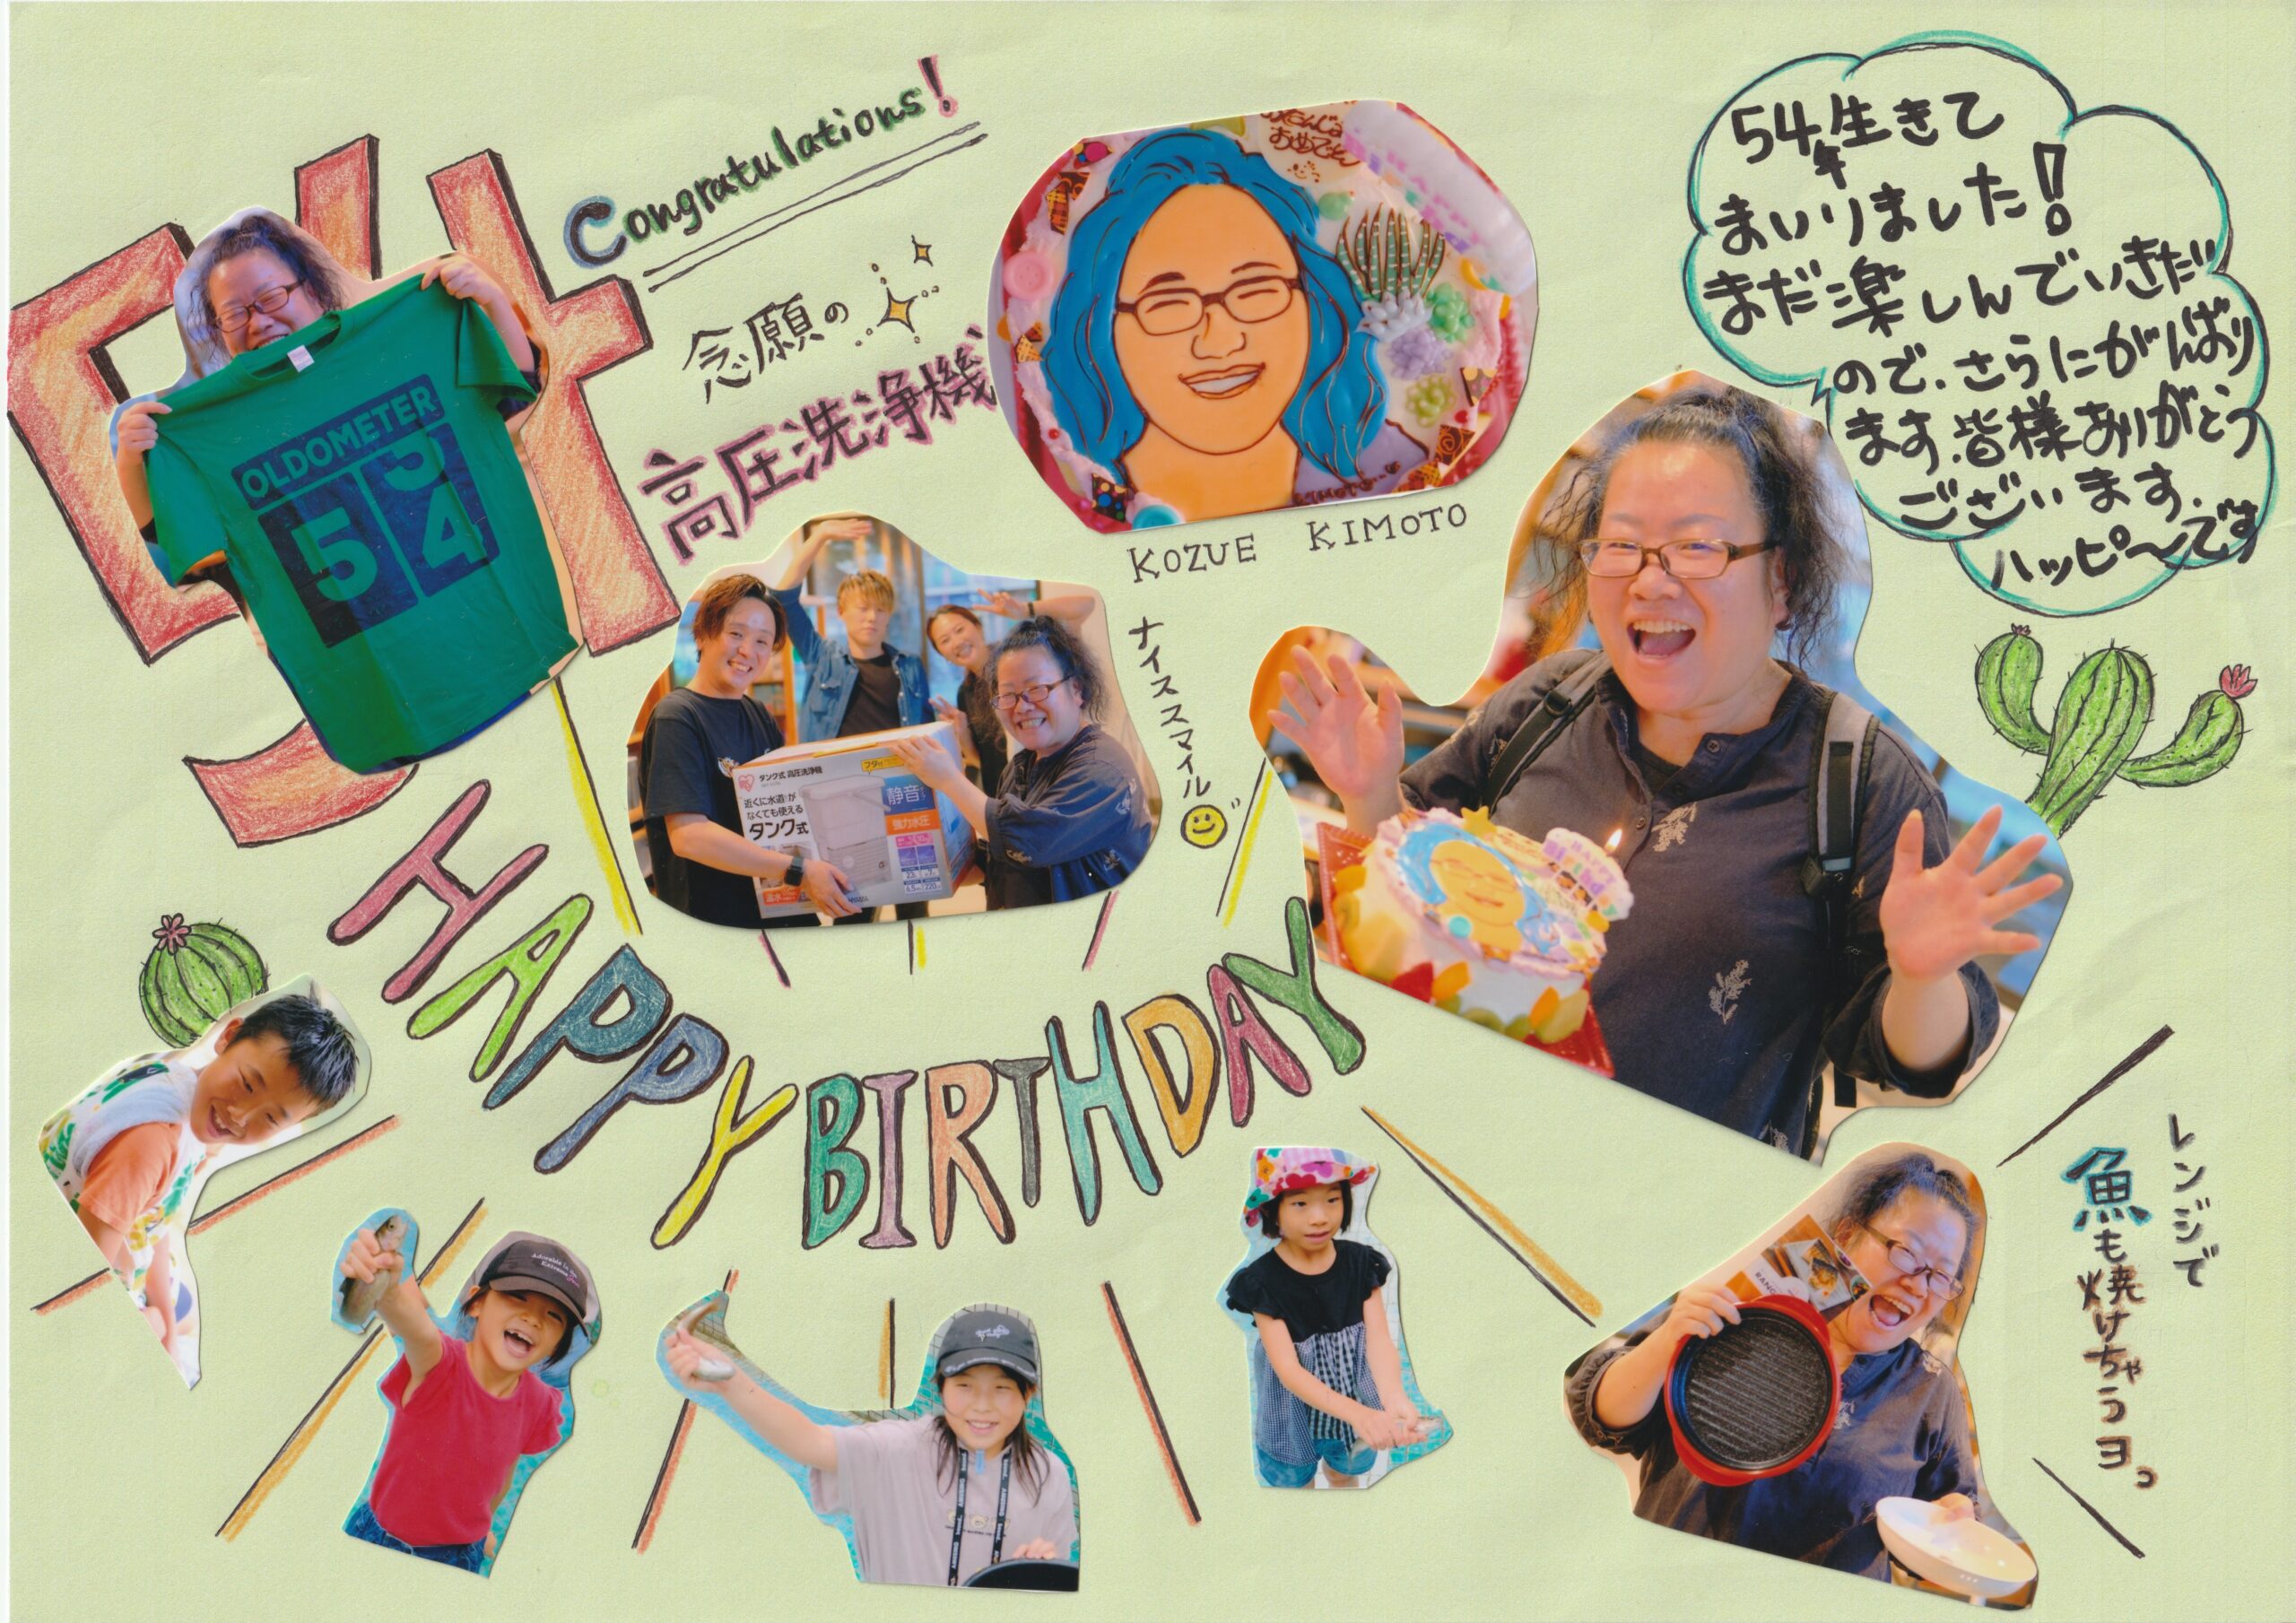 Congratulations!
念願の
高圧洗浄機
54
OLDOMETER
5 3
4
おめでとう
KOZUE KIMOTO
ナイススマイル
54年生きて
まいりました!
まだ楽しんでいきたい
ので、さらにがんばり
ます。皆様ありがとう
ございます。
ハッピ〜です
タンク式 高圧洗浄機
近くに水道が
なくても使える
タンク式
静音
強力水圧
HAPPY
Birthday
HAPPY BIRTHDAY
レンジで
魚も焼けちゃうヨ。